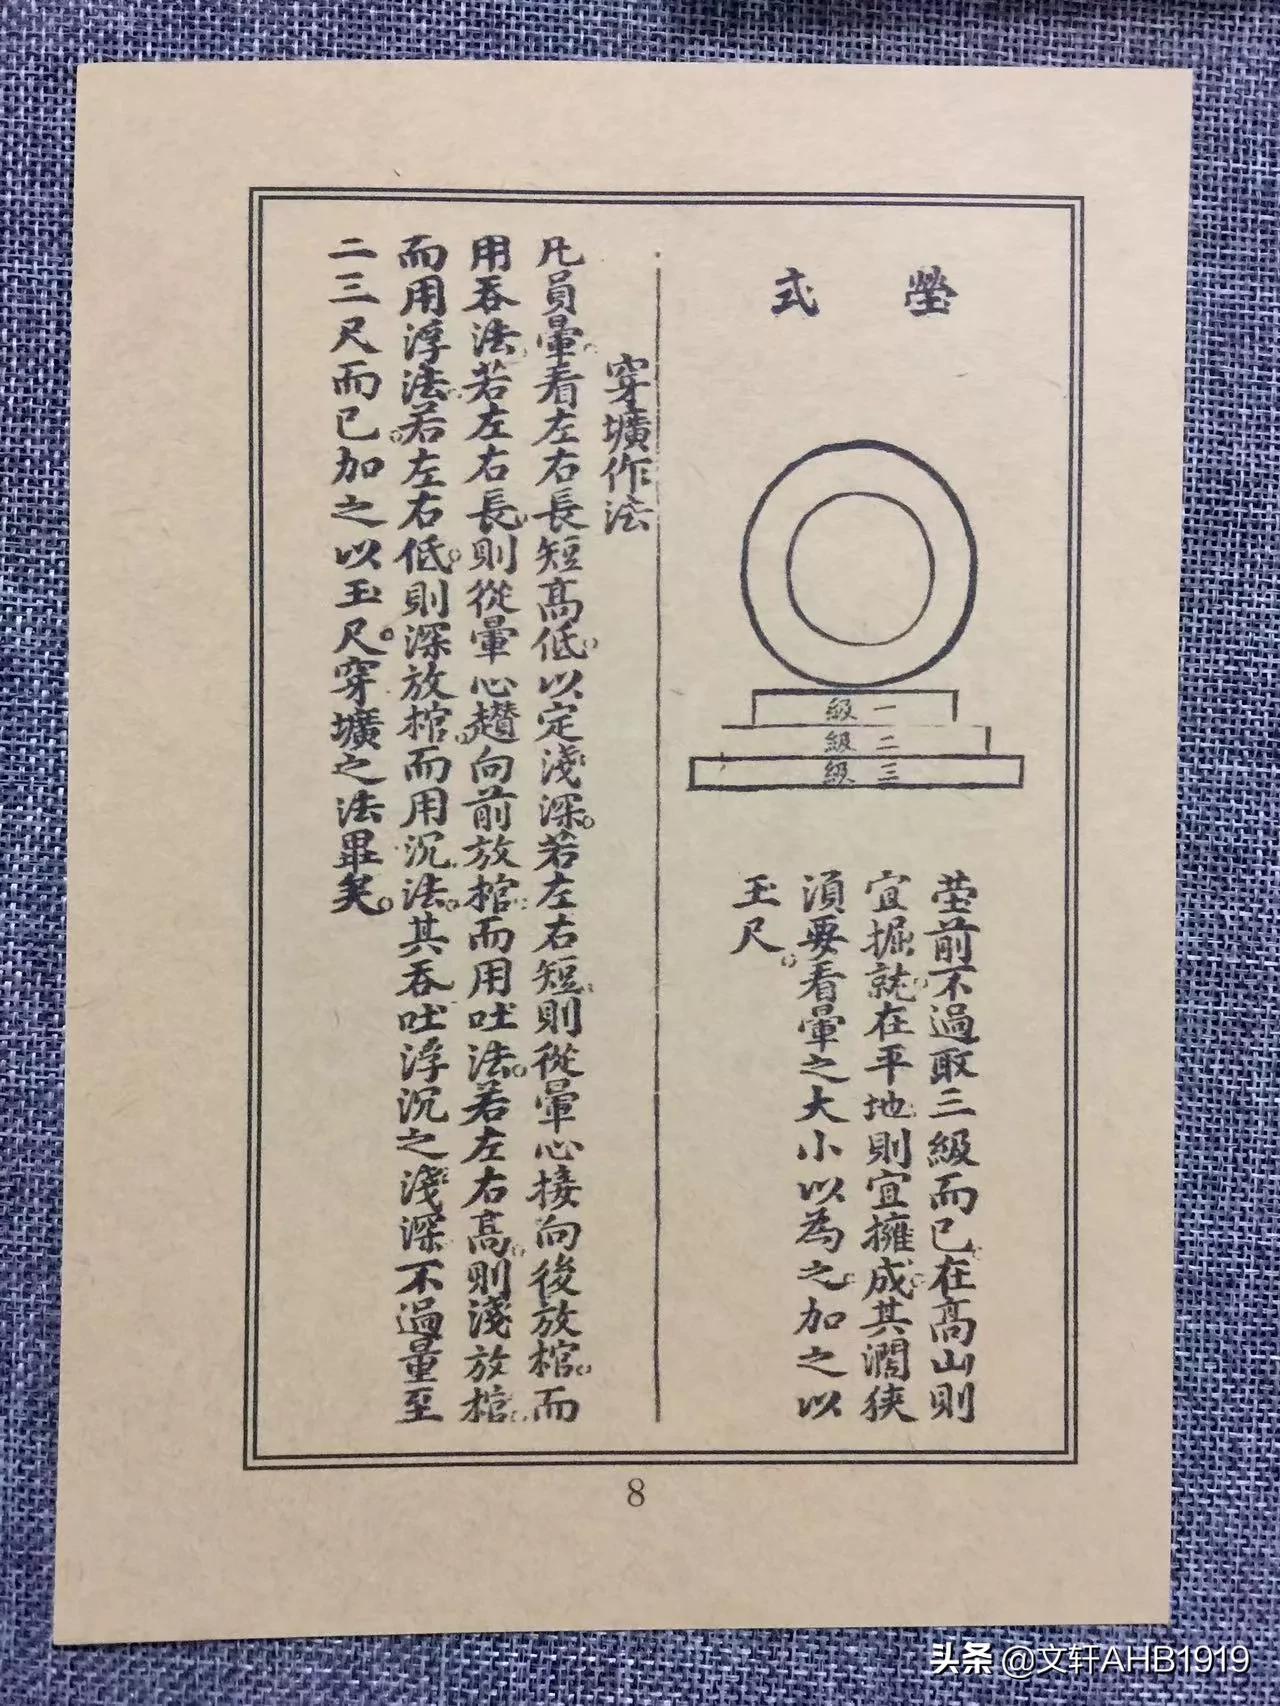 塋式
一級
二級
三級
塋前不過取三級而已。在高山則
宜掘就。在平地則宜擁成。其濶狹
須要看暈之大小以為之。加之以
玉尺。
穿壙作法
凡員暈。看左右長短高低。以定淺深。若左右短。則從暈心接向後放棺。而
用吞法。若左右長。則從暈心趲向前放棺。而用吐法。若左右高。則淺放棺。
而用浮法。若左右低。則深放棺。而用沉法。其吞吐浮沉之淺深不過量至
二三尺而已。加之以玉尺。穿壙之法畢矣。
8
头条 @文轩AHB1919